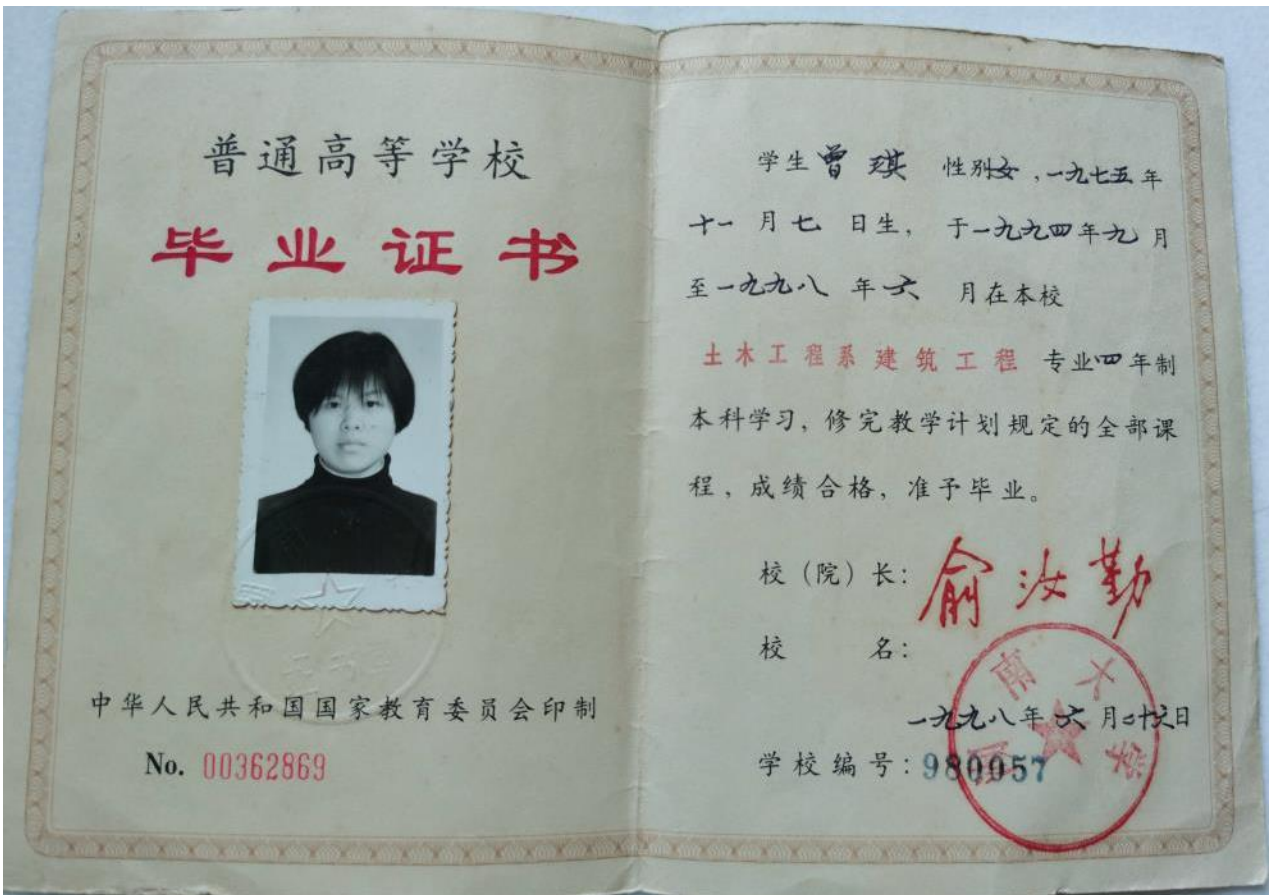 普通高等学校
毕业证书
中华人民共和国国家教育委员会印制
No. 00362869
学生曾琪 性别女，一九七五年
十一月七日生，于一九九四年九月
至一九九八年六月在本校
土木工程系建筑工程专业四年制
本科学习，修完教学计划规定的全部课
程，成绩合格，准予毕业。
校（院）长：俞汝勤
校名：
湖南大学
一九九八年六月二十六日
学校编号：980057